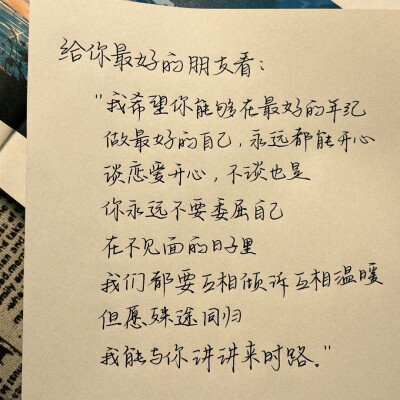 给你最好的朋友看：
“我希望你能够在最好的年纪
做最好的自己，永远都能开心
谈恋爱开心，不谈也是
你永远不要委屈自己
在不见面的日子里
我们都要互相倾诉互相温暖
但愿殊途同归
我能与你讲讲来时路。”